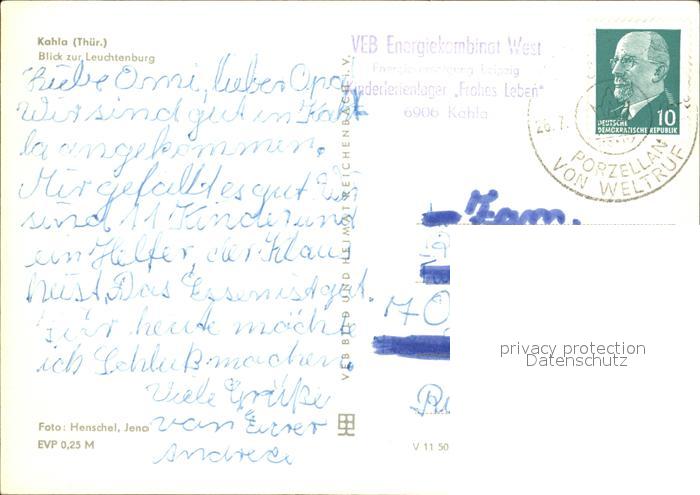 Kahla (Thür.)
Blick zur Leuchtenburg
Liebe Omi, lieber Opa!
Wir sind gut in Kah
la angekommen.
Mir gefällt es gut. Wir
sind 11 Kinder und
ein Helfer, der Klaus
heist. Das Essen ist gut.
Für heute möchte
ich Schluß machen.
Viele Grüße
von Eurer
Andrea
Foto: Henschel, Jena
EVP 0,25 M
VEB BILD UND HEIMAT REICHENBACH i. V.
V 11 50
VEB Energiekombinat West
Energieversorgung Leipzig
Kinderferienlager „Frohes Leben"
6906 Kahla
10
DEUTSCHE
DEMOKRATISCHE REPUBLIK
26.7.
PORZELLAN
VON WELTRUF
Fam.
70
privacy protection
Datenschutz